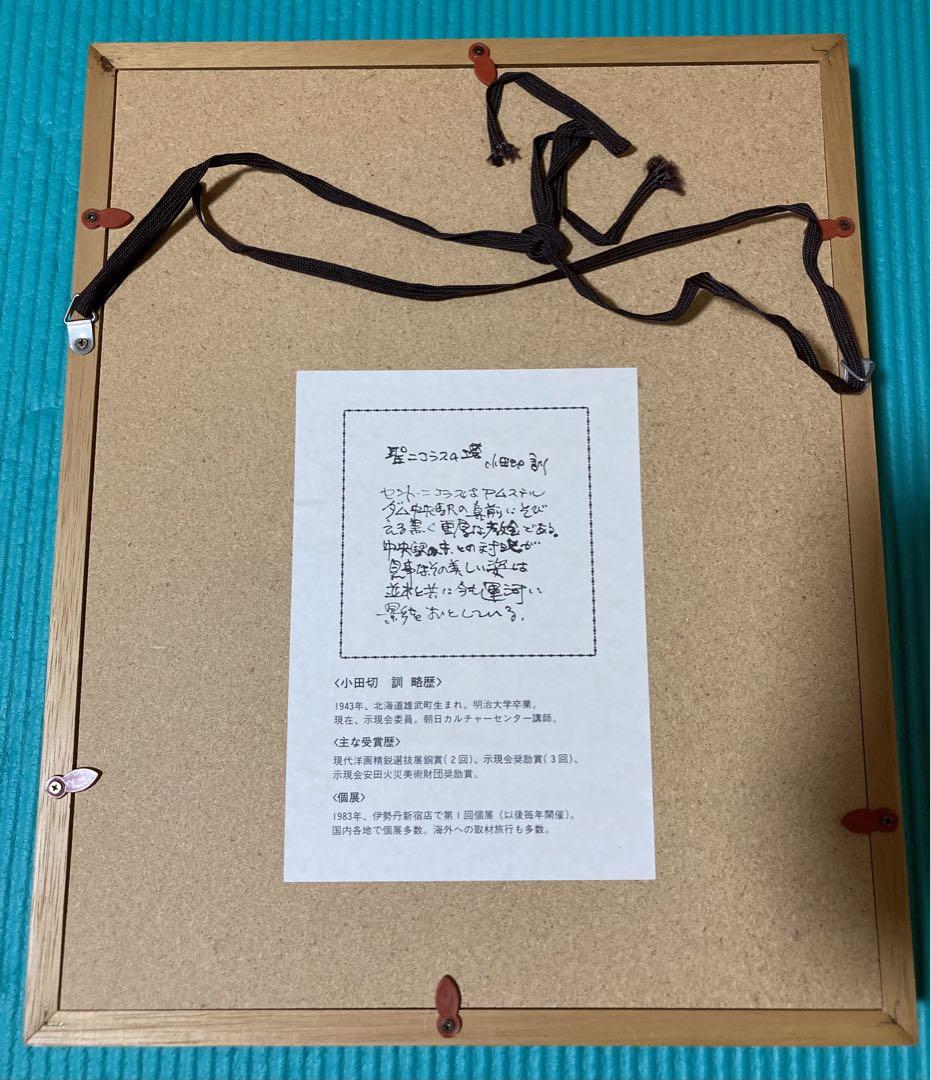 聖ニコラスの塔 小田切 訓
セント・ニコラスはアムステル
ダム中央駅の真前にそび
える黒く重厚な
中央駅の との対比が
見事なその美しい姿は
並木と共に今も運河に
影をおとしている。
〈小田切 訓 略歴〉
1943年、北海道雄武町生まれ。明治大学卒業。
現在、示現会委員。朝日カルチャーセンター講師。
〈主な受賞歴〉
現代洋画精鋭選抜展銅賞(2回)、示現会奨励賞(3回)、
示現会安田火災美術財団奨励賞。
〈個展〉
1983年、伊勢丹新宿店で第1回個展(以後毎年開催)。
国内各地で個展多数。海外への取材旅行も多数。